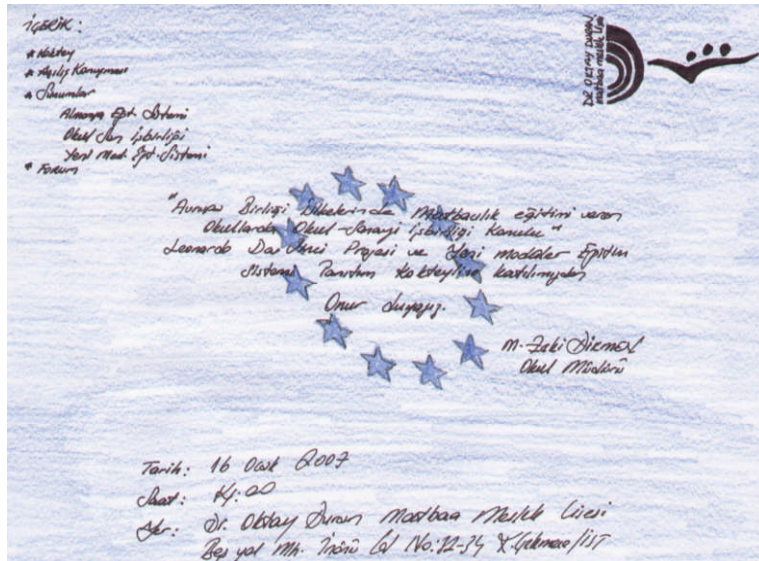 İÇERİK :
* Kokteyl
* Açılış Konuşması
* Sunumlar
Almanya Eğt. Sistemi
Okul San İşbirliği
Yeni Mod. Eğt. Sistemi
* Forum
DR. OKTAY DURAN
matbaa meslek lisesi
"Avrupa Birliği Ülkelerinde Matbaacılık eğitimi veren
Okullarda Okul-Sanayi İşbirliği Konulu"
Leonardo Da Vinci Projesi ve Yeni modüler Eğitim
Sistemi Tanıtım kokteyline katılımızdan
Onur duyarız.
M. Zeki
Okul Müdürü
Tarih: 16 Ocak 2007
Saat: :00
Yer: Dr. Oktay Duran Matbaa Meslek Lisesi
Beş yol Mh. İnönü Cd No:32-34 K.Çekmece/İST